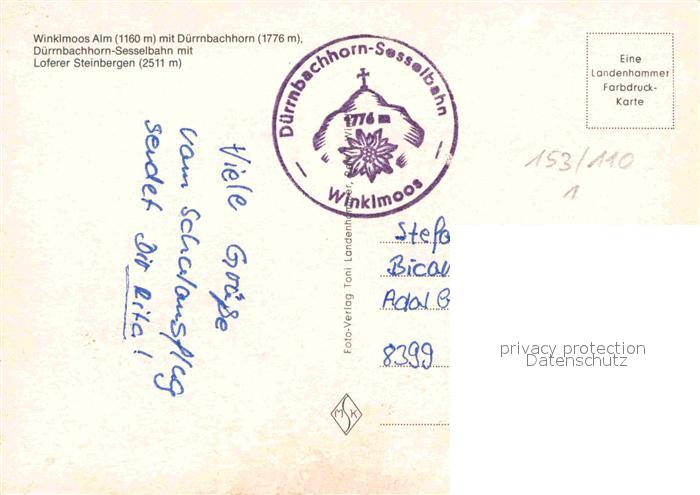 Winklmoos Alm (1160 m) mit Dürrnbachhorn (1776 m),
Dürrnbachhorn-Sesselbahn mit
Loferer Steinbergen (2511 m)
Dürrnbachhorn-Sesselbahn
1776 m
Winklmoos
Eine
Landenhammer
Farbdruck-
Karte
153/110
1
Viele Grüße
vom Schulausflug
sendet Dir Rita!
Foto-Verlag Toni Landenhammer,
Stefa
Bical
Adal
8399
MSK
privacy protection
Datenschutz